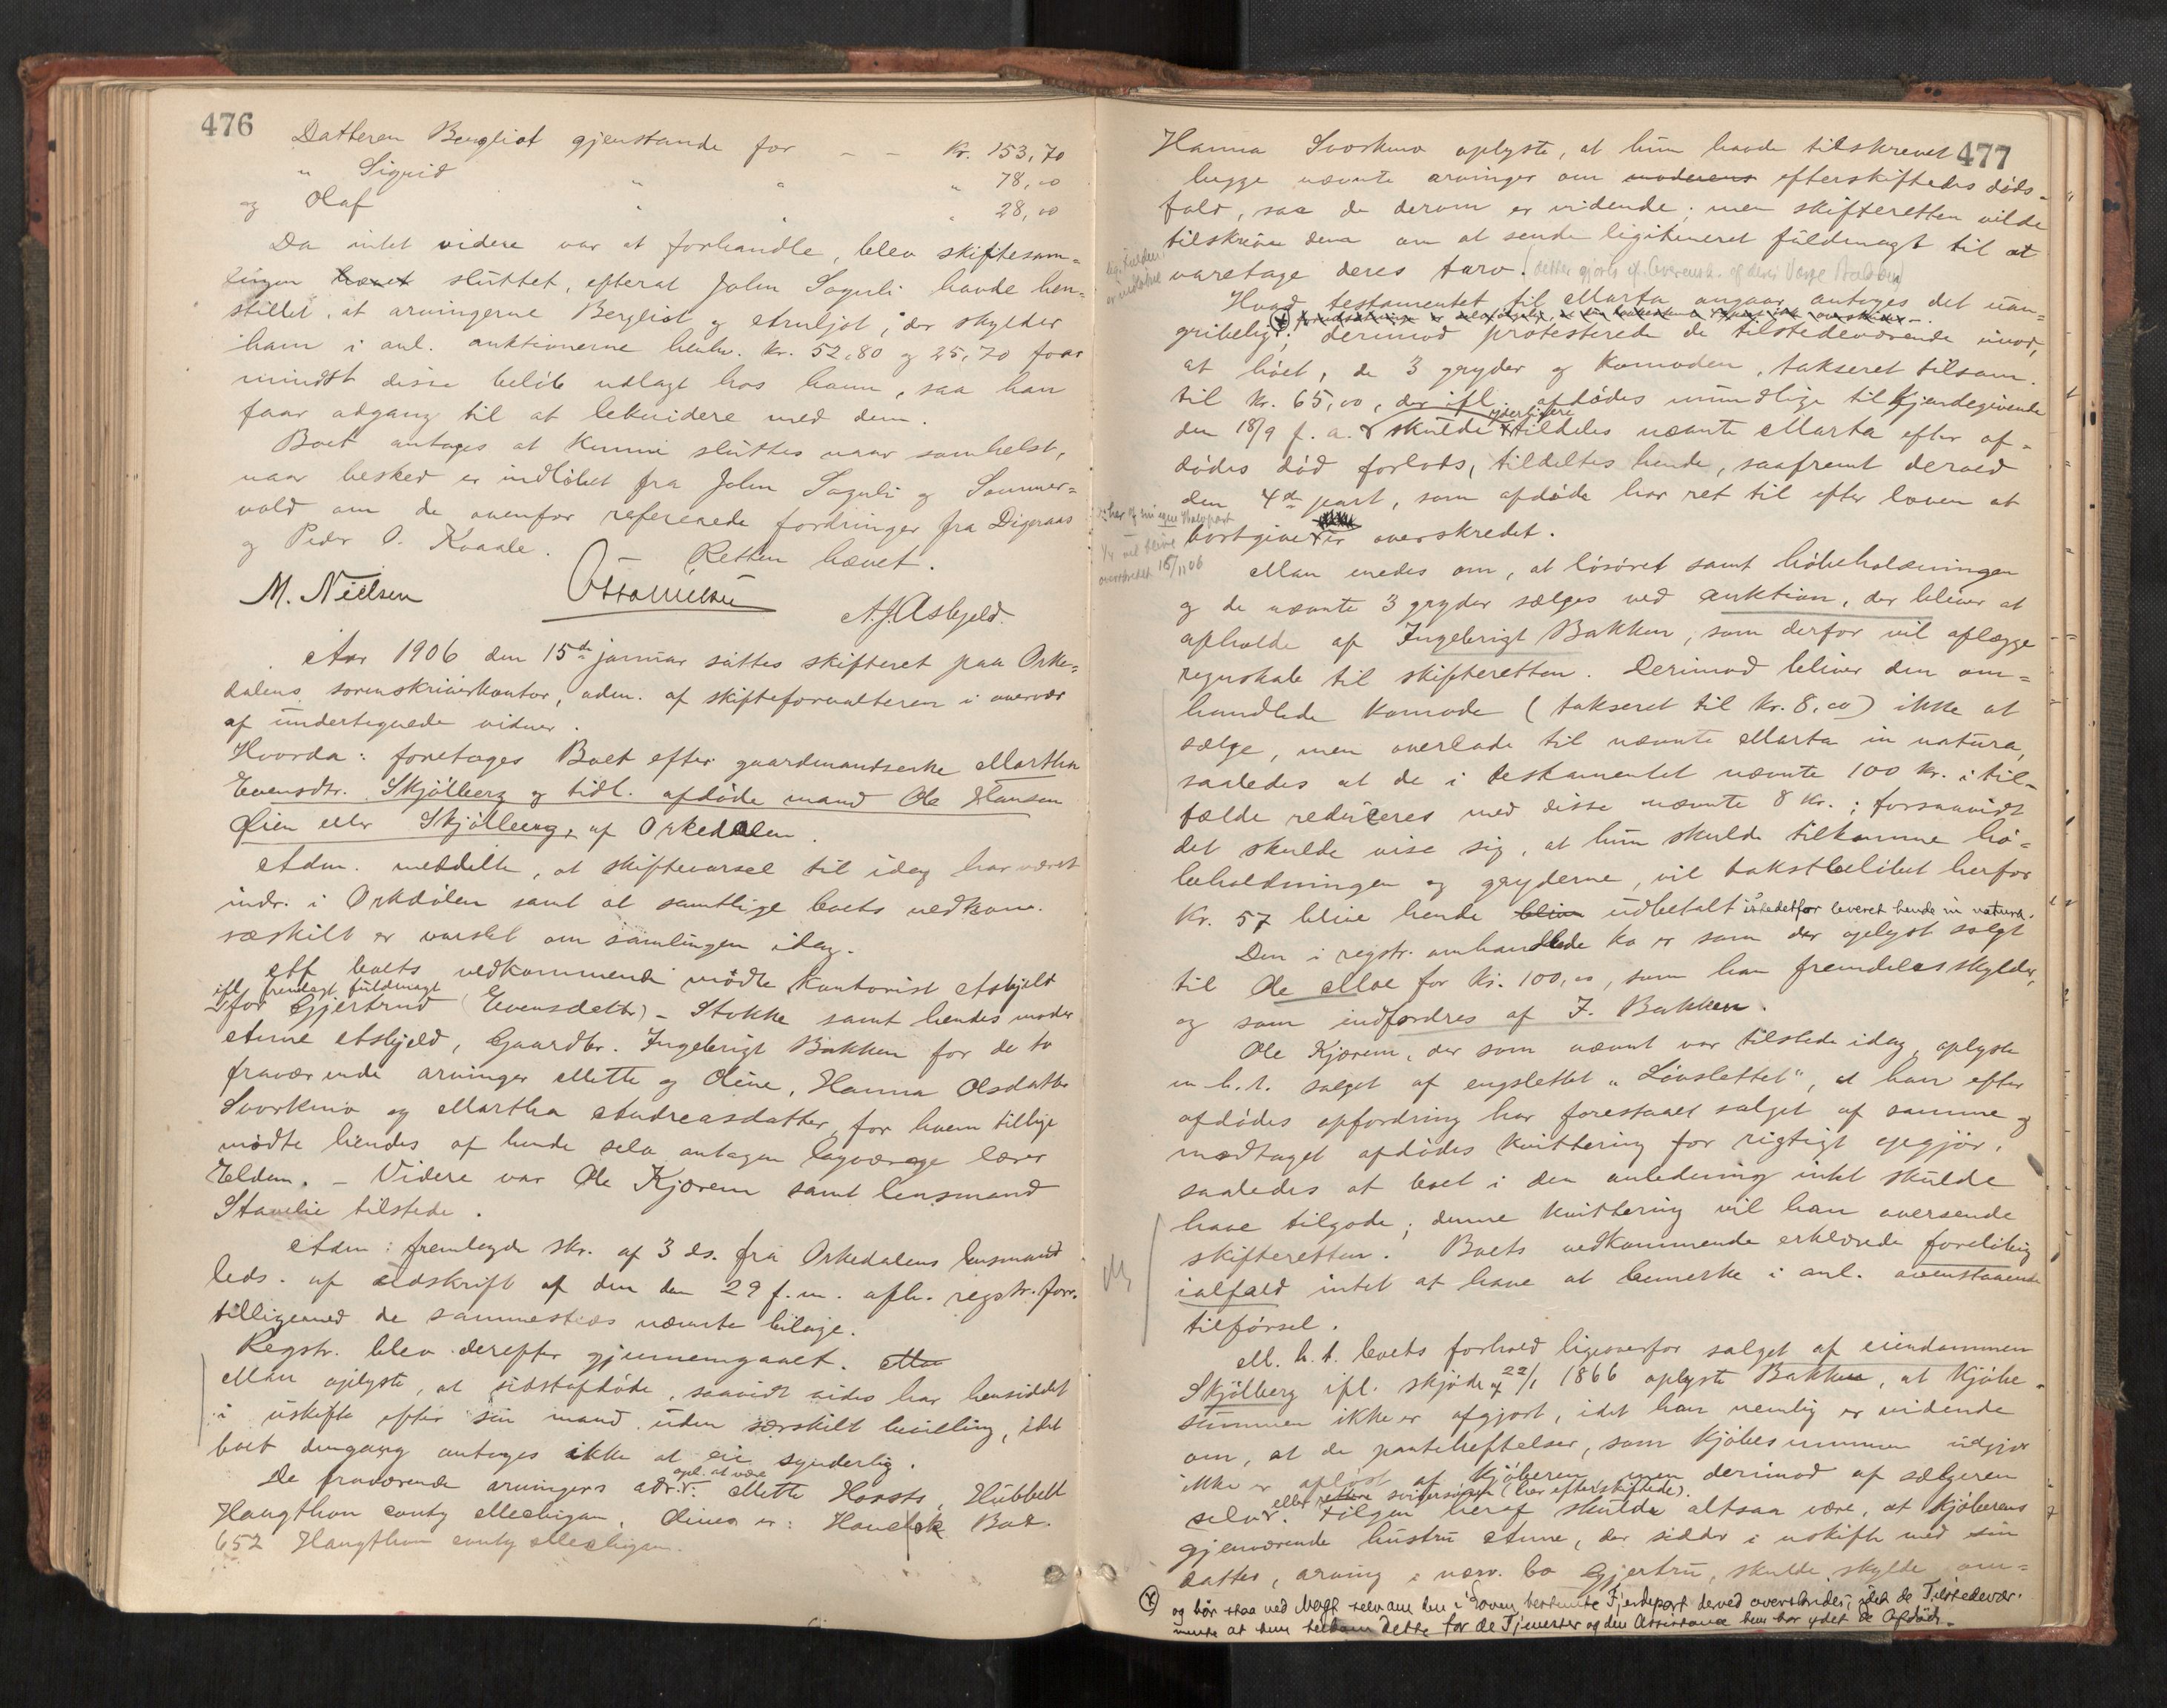 476
Datteren Bergliot gjenstande for – – Kr. 153,70
" Sigrid " " " 78,00
og Olaf " " " 28,00
Da intet videre var at forhandle, blev skiftesam=
lingen hævet sluttet, efterat John Soguli havde hen=
stillet, at arvingerne Bergliot og Arnljot, der skylder
ham i anl. auktionerne henh. kr. 52,80 og 25,70 faar
mindst disse beløb udlagt hos ham, saa han
faar adgang til at lekvidere med dem.
Boet antages at kunne sluttes naar somhelst,
naar besked er indløbet fra John Soguli og Sommer=
vold om de ovenfor refererede fordringer fra Digeraas
og Peder O. Kvaale. – Retten hævet.
M. Nielsen
A.J. Asbjeld.
Aar 1906 den 15de januar sattes skifteret paa Orke=
dalens sorenskriverkontor, adm. af skifteforvalteren i overvær
af undertegnede vidner.
Hvorda: foretoges Boet efter gaardmandsenke Martha
Evensdtr. Skjølberg og tidl. afdøde mand Ole Hansen
Øien eller Skjølberg, af Orkedalen.
Adm. meddelte, at skiftevarsel til idag har været
indr. i Orkdølen samt at samtlige boets vedkom.
særskilt er varslet om samlingen idag.
Af boets vedkommende mødte kontorist Asbjeld
ifl. fremlagt fuldmagt
for Gjertrud (Evensdatter) – Stokke samt hendes moder
Anne Asbjeld, Gaardbr. Ingebrigt Bakken for de to
fraværende arvinger Mette og Oline, Hanna Olsdatter
Svorkmo og Martha Andreasdatter, for hvem tillige
mødte hendes af hende selv antagen lagværge lærer
Eldem. – Videre var Ole Kjørem samt lensmand
Stavlie tilstede.
Adm: fremlagde skr. af 3 ds. fra Orkedalens lensmand
leds. af udskrift af den den 29 f.m. afh. registr. forr.
tilligemed de sammesteds nævnte bilage.
Regstr. blev derefter gjennemgaaet.
Man oplyste, at sidstafdøde, saavidt vides har hensiddet
i uskifte efter sin mand uden særskilt bevilling, idet
boet dengang antages ikke at eie synderlig.
opl. at være
De fraværende arvingers adr. Mette Horsts, Hubbell
Haugthon conty Mechigan. Olines er: Hancock Box
652 Haugthon conty Mechigan.
477
Hanna Svorkmo oplyste, at hun havde tilskrevet
begge nævnte arvinger om moderens efterskiftedes døds-
fald, saa de derom er vidende; men skifteretten vilde
tilskrive dem om at sende legitimeret fuldmagt til at
varetage deres tarv.
Hvad testamentet til Marta angaar, antages det uan=
gribeligt; derimod protesterede de tilstedeværende imod,
at høet, de 3 gryder og komoden, takseret tilsam.
til kr. 65,00, der ifl. afdødes mundlige tilkjendegivende
yderligere
den 18/9 f.a. skulde tildeles nævnte Marta efter af=
dødes død forlods, tildeltes hende, saafremt derved
den 4de part, som afdøde har ret til efter loven at
bortgive er overskredet.
15/1 06
Man enedes om, at løsøret samt høbeholdningen
og de nævnte 3 gryder sælges ved auktion, der bliver at
afholde af Ingebrigt Bakken, som derfor vil aflægge
regnskab til skifteretten. Derimod bliver den om=
handlede komode (takseret til kr. 8,00) ikke at
sælge, men overlade til nævnte Marta in natura,
saaledes at de i testamentet nævnte 100 kr. i til-
fælde reduceres med disse nævnte 8 kr.; forsaavidt
det skulde vise sig, at hun skulde tilkomme hø=
beholdningen og gryderne, vil takstbeløbet herfor
Kr. 57 blive hende bliv udbetalt istedetfor leveret hende in natura.
Den i registr. omhandlede ko er som der oplyst solgt
til Ole Moe for kr. 100,00, som han fremdeles skylder,
og som indfordres af I. Bakken.
Ole Kjørem, der som nævnt var tilstede idag, oplyste
m.h.t. salget af engslettet "Løvslettet", at han efter
afdødes opfordring har forestaaet salget af samme og
modtaget afdødes kvittering for rigtigt opgjør,
saaledes at boet i den anledning intet skulde
have tilgode; denne kvittering vil han oversende
skifteretten. Boets vedkommende erklærede foreløbig
ialfald intet at have at bemerke i anl. ovenstaaende
tilførsel.
M.h.t. boets forhold ligeoverfor salget af eiendommen
Skjølberg ifl. skjøde af 22/1 1866 oplyste Bakken, at kjøbe-
summen ikke er afgjort, idet han nemlig er vidende
om, at de pantehæftelser, som kjøbesummen udgjør
ikke er apløst af kjøberen, men derimod af sælgeren
eller rettere svigersønnen (her efterskiftede).
selv. Følgen heraf skulde altsaa være, at kjøberens
gjenværende hustru Anne, der sidder i uskifte med sin
datter, arving i nærv. bo Gjertru, skulde skylde om=
og bør staa ved Magt selvom den i Loven bestemte Fjerdepart derved overskrides, idet de Tilstedevær.
mente at hun tilkom dette for de Tjenester og den Assistance hun har ydet de Afdøde.